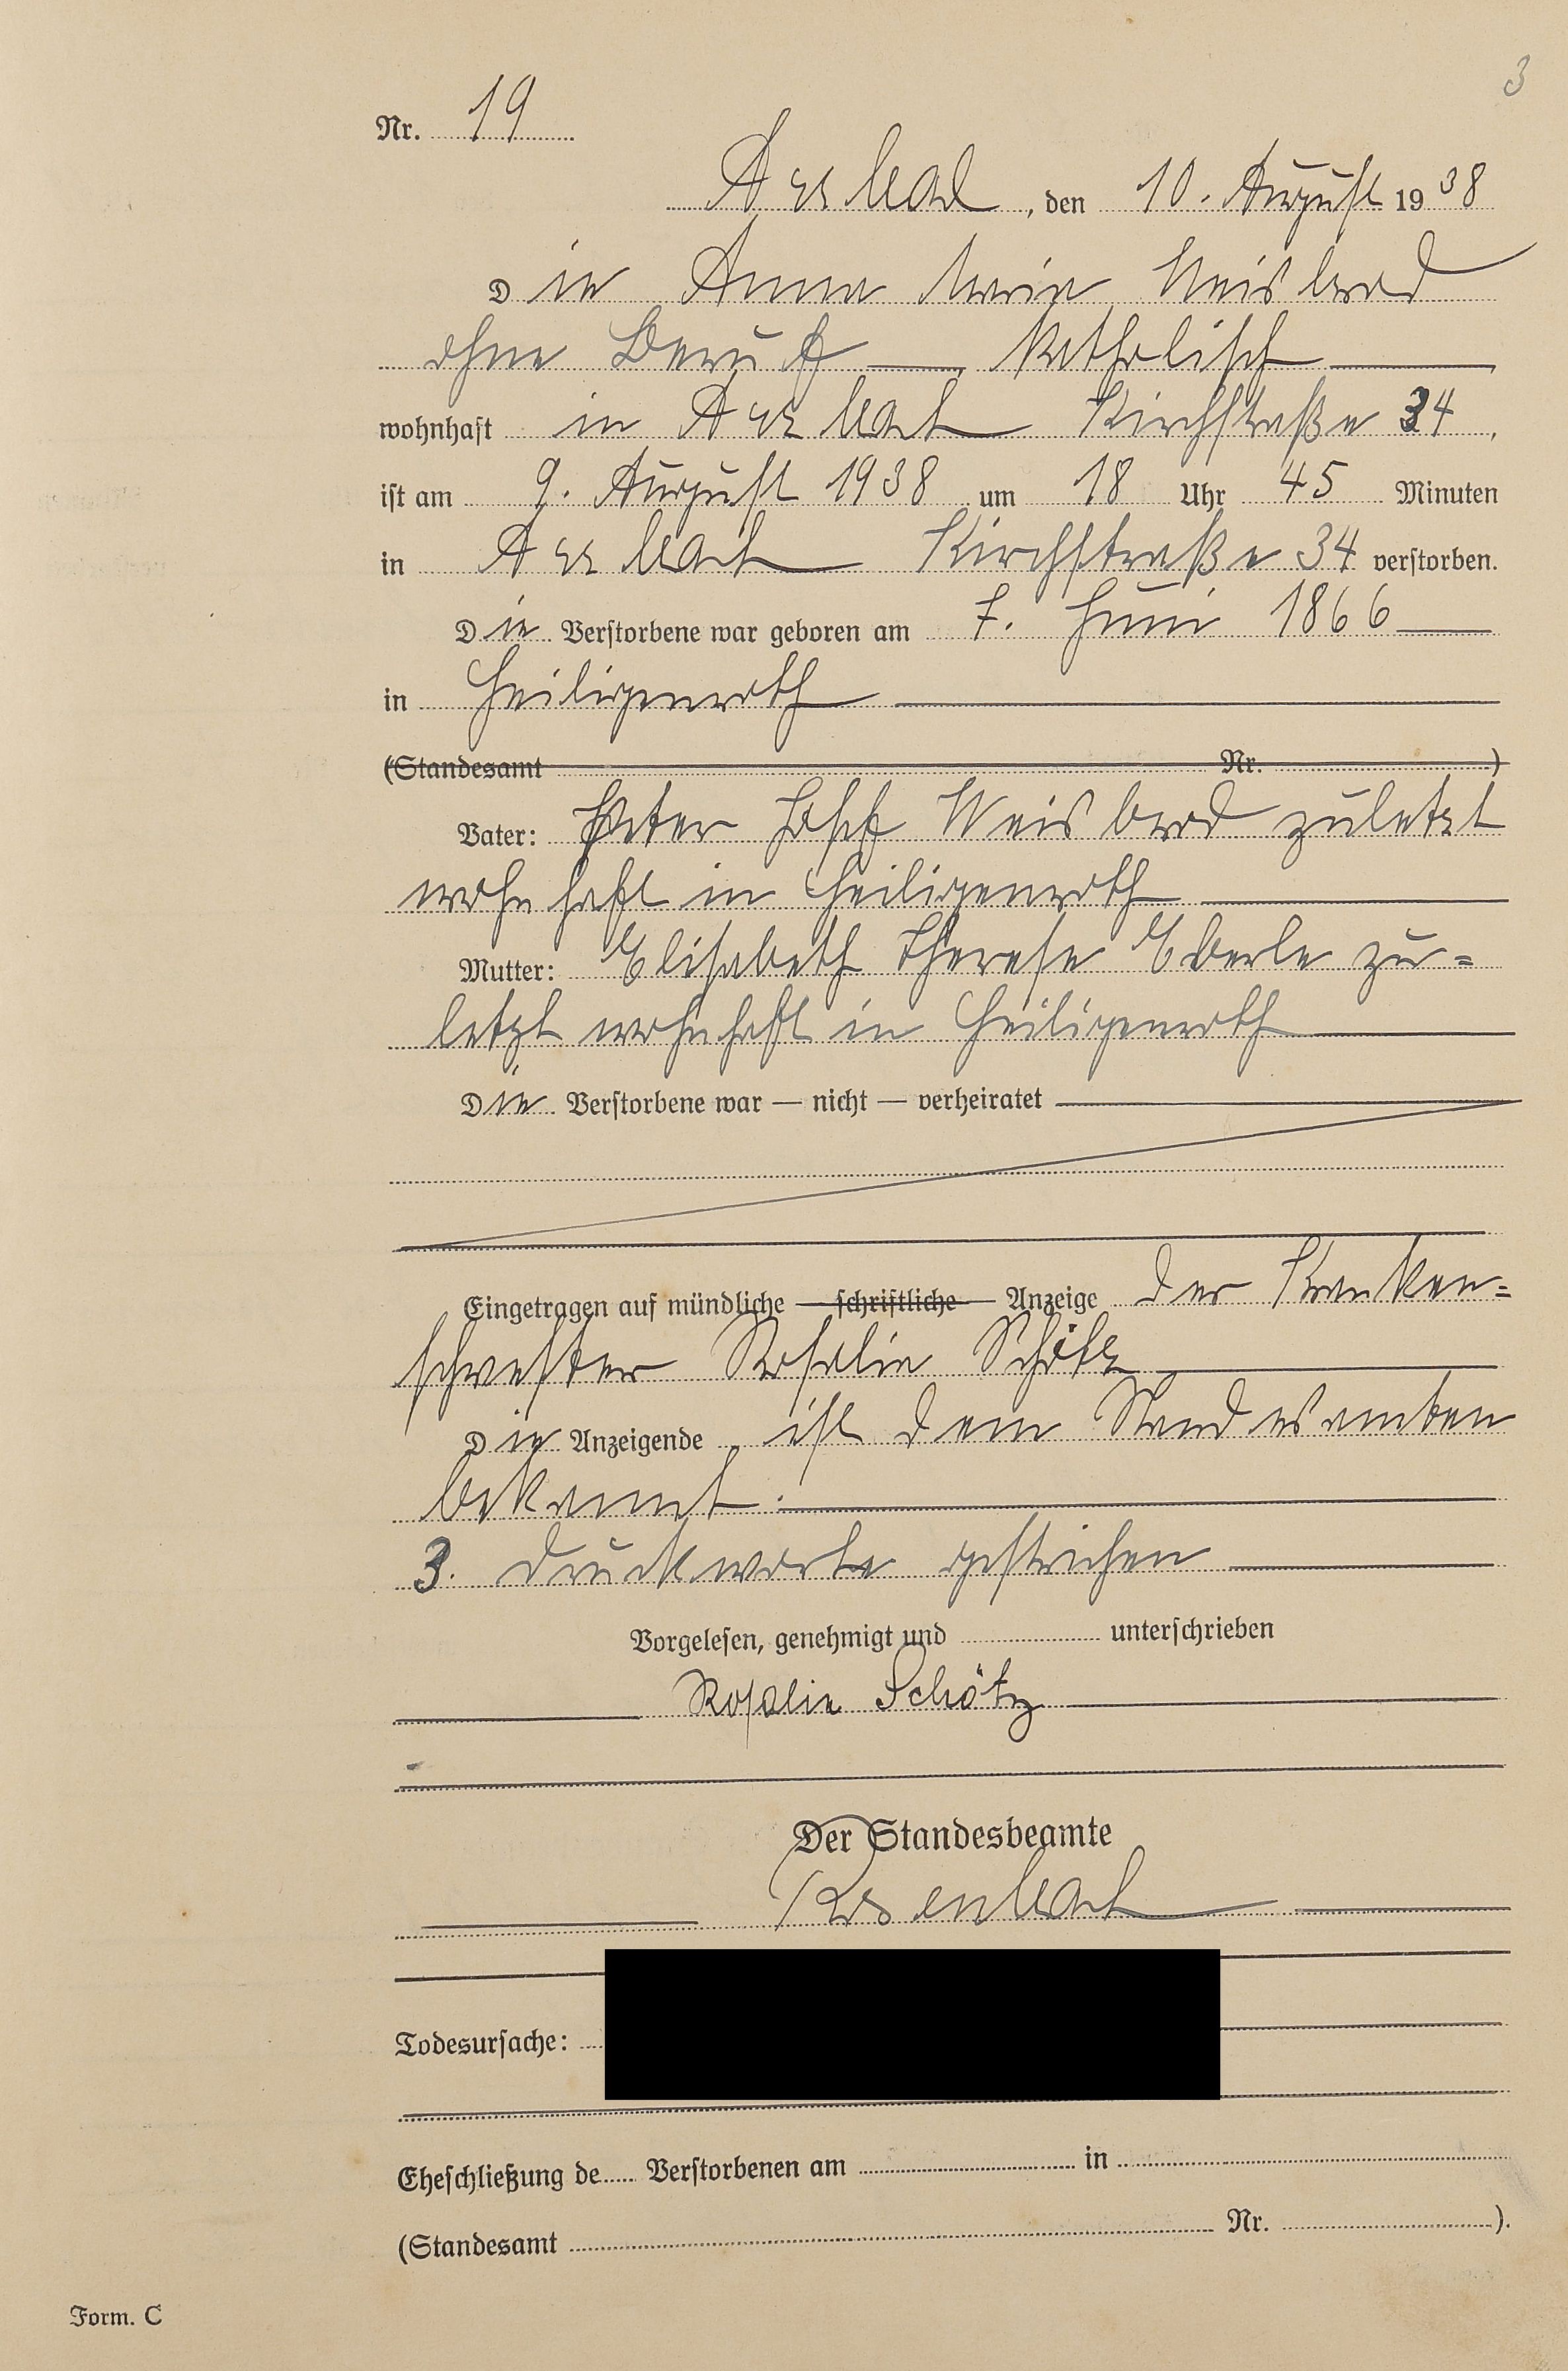 3
Nr. 19
Arzbach, den 10. August 1938
Die Anna Maria Weisbrod
ohne Beruf — katholisch
wohnhaft in Arzbach Kirchstraße 34,
ist am 9. August 1938 um 18 Uhr 45 Minuten
in Arzbach Kirchstraße 34 verstorben.
Die Verstorbene war geboren am 7. Juni 1866
in Heiligenroth
(Standesamt Nr. )
Vater: Peter Josef Weisbrod zuletzt
wohnhaft in Heiligenroth
Mutter: Elisabeth Therese Eberle zu=
letzt wohnhaft in Heiligenroth
Die Verstorbene war — nicht — verheiratet
Eingetragen auf mündliche — schriftliche — Anzeige der Kranken=
schwester Rosalie Schötz
Die Anzeigende ist dem Standesamten
bekannt.
3. Druckworte gestrichen
Vorgelesen, genehmigt und unterschrieben
Rosalie Schötz
Der Standesbeamte
Todesursache:
Eheschließung de Verstorbenen am in
(Standesamt Nr. ).
Form. C